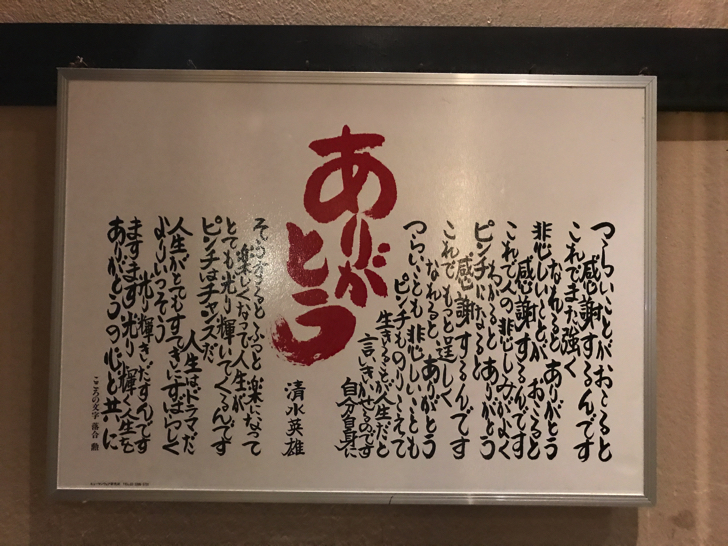 つらいことがおこると
感謝するんです
これでまた強く
なれると ありがとう
悲しいことが おこると
感謝するんです
これで人の悲しみがよく
わかると ありがとう
ピンチになると
感謝するんです
これでもっと逞しく
なれると ありがとう
つらいことも悲しいことも
ピンチものりこえて
生きるのが人生だと
言いきかせるのです
自分自身に
ありがとう
清水英雄
そうするとふっと楽になって
楽しくなって人生が
とても光り輝いてくるんです
ピンチはチャンスだ
人生はドラマだ
人生がとてもすてきにすばらしく
よりいっそう
光り輝きだすんです
ますます光り輝く人生を
ありがとうの心と共に
こころの文字 落合 勲